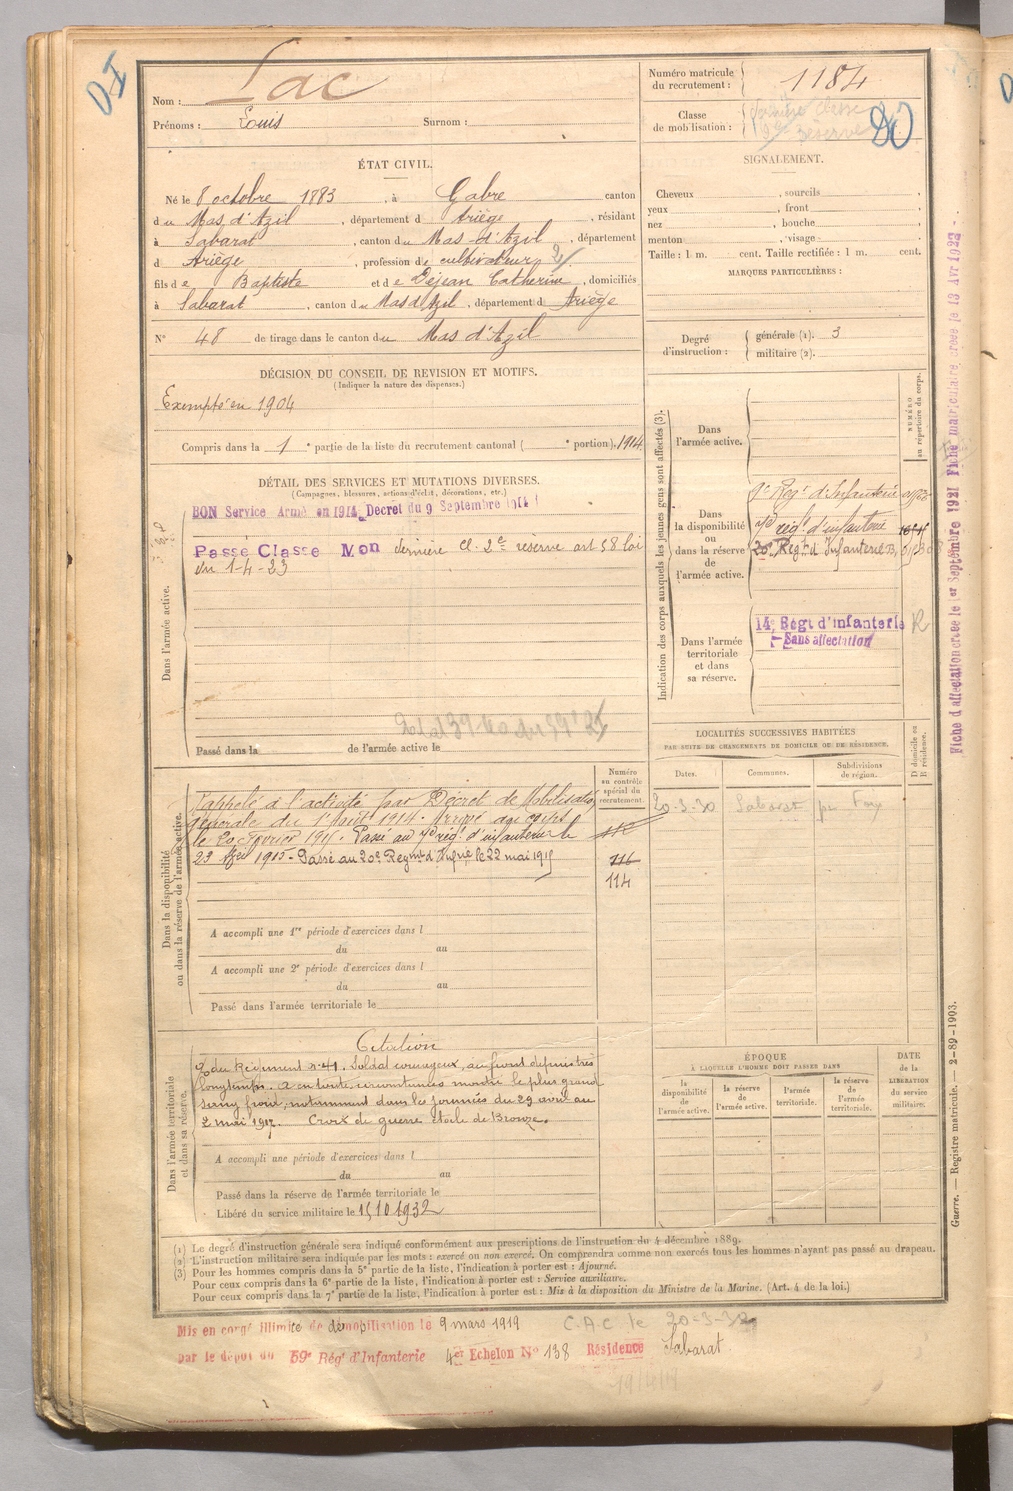 Nom : Lac
Prénoms : Louis Surnom :
Numéro matricule du recrutement : 1184
Classe de mobilisation : dernière classe 2e réserve
ÉTAT CIVIL.
Né le 8 octobre 1883, à Gabre canton
du Mas d'Azil, département d Ariège, résidant
à Sabarat, canton du Mas-d'Azil, département
d Ariège, profession de cultivateur
fils de Baptiste et de Dejean Catherine, domiciliés
à Sabarat, canton du Mas d'Azil, département d Ariège
N° 48 de tirage dans le canton du Mas d'Azil
SIGNALEMENT.
Cheveux , sourcils ,
yeux , front ,
nez , bouche ,
menton , visage
Taille : 1 m. cent. Taille rectifiée : 1 m. cent.
MARQUES PARTICULIÈRES :
Degré d'instruction : générale (1). 3
militaire (2).
DÉCISION DU CONSEIL DE REVISION ET MOTIFS.
(Indiquer la nature des dispenses.)
Exempté en 1904
Compris dans la 1e partie de la liste du recrutement cantonal ( e portion). 1914
DÉTAIL DES SERVICES ET MUTATIONS DIVERSES.
(Campagnes, blessures, actions d'éclat, décorations, etc.)
Dans l'armée active.
BON Service Armé en 1914 Decret du 9 Septembre 1914
Passé Classe Mon dernière cl. 2e réserve art 58 loi
du 1-4-23
Passé dans la de l'armée active le
Indication des corps auxquels les jeunes gens sont affectés (3).
NUMÉRO au répertoire du corps.
Dans l'armée active.
Dans la disponibilité ou dans la réserve de l'armée active.
Régt d'Infanterie
régt d'infanterie
20e Régt d'Infanterie
Dans l'armée territoriale et dans sa réserve.
14e Régt d'infanterie
Sans affectation
R
Fiche d'affectation créée le 1er Septembre 1921 Fiche matriculaire créée le 13 Avr 1923
LOCALITÉS SUCCESSIVES HABITÉES
PAR SUITE DE CHANGEMENTS DE DOMICILE OU DE RÉSIDENCE.
Dates. Communes. Subdivisions de région. D domicile ou R résidence.
20-3-30 Sabarat
Numéro au contrôle spécial du recrutement.
Dans la disponibilité ou dans la réserve de l'armée active.
Rappelé à l'activité par Décret de Mobilisation
générale du 1er Août 1914. Arrivé au corps
le 20 février 1915. Passé au régt d'infanterie le
23 1915 - Passé au 20e Regmt d'Infrie le 22 mai 1915
116
114
A accompli une 1re période d'exercices dans l
du au
A accompli une 2e période d'exercices dans l
du au
Passé dans l'armée territoriale le
Dans l'armée territoriale et dans sa réserve.
Citation
O du Régiment n° 41. Soldat courageux, au front depuis très
longtemps. a en toute circonstances montré le plus grand
sang froid, notamment dans les journées du 29 avril au
2 mai 1917. Croix de guerre étoile de Bronze.
A accompli une période d'exercices dans l
du au
Passé dans la réserve de l'armée territoriale le
Libéré du service militaire le 15 10 1932
ÉPOQUE
À LAQUELLE L'HOMME DOIT PASSER DANS
la disponibilité de l'armée active. la réserve de l'armée active. l'armée territoriale. la réserve de l'armée territoriale.
DATE de la LIBÉRATION du service militaire.
Guerre. — Registre matricule. — 2-89-1903.
(1) Le degré d'instruction générale sera indiqué conformément aux prescriptions de l'instruction du 4 décembre 1889.
(2) L'instruction militaire sera indiquée par les mots : exercé ou non exercé. On comprendra comme non exercés tous les hommes n'ayant pas passé au drapeau.
(3) Pour les hommes compris dans la 5e partie de la liste, l'indication à porter est : Ajourné.
Pour ceux compris dans la 6e partie de la liste, l'indication à porter est : Service auxiliaire.
Pour ceux compris dans la 7e partie de la liste, l'indication à porter est : Mis à la disposition du Ministre de la Marine. (Art. 4 de la loi.)
Mis en congé illimité de démobilisation le 9 mars 1919 C.A.C le 20-3-30
par le dépôt du 59e Régt d'Infanterie 4er Echelon N° 138 Résidence Sabarat